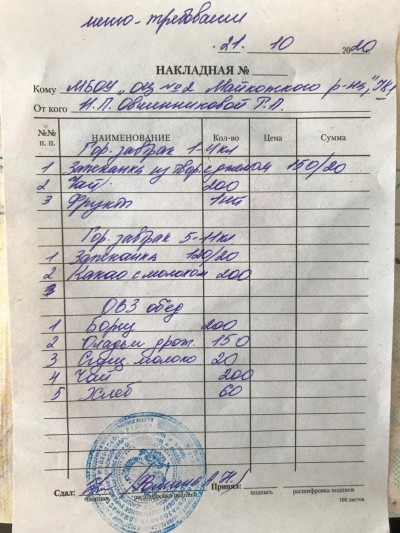 меню-требование
21. 10 2020
НАКЛАДНАЯ №
Кому МБОУ "ОЦ №2 Майкопского р-на"
От кого И.П. Овчинниковой Г.А.
№№ п. п. НАИМЕНОВАНИЕ Кол-во Цена Сумма
Гор. завтрак 1-4 кл
1 Запеканка из твор. с джемом 150/20
2 Чай 200
3 Фрукты 1шт
Гор. завтрак 5-11кл
1 Запеканка 120/20
2 Какао с молоком 200
3
ОВЗ обед
1 Борщ 200
2 Оладьи дрож. 150
3 Сгущ. молоко 20
4 Чай 200
5 Хлеб 60
Сдал: Принял:
подпись расшифровка подписи подпись расшифровка подписи
100 листов